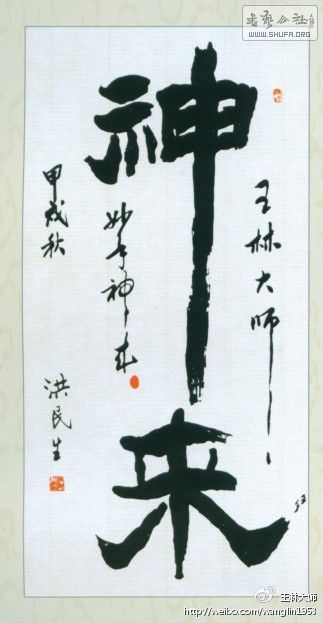 書藝公社
WWW.SHUFA.ORG
王林大师
神来
妙手神来
甲戌秋
洪民生
王林大师
http://weibo.com/wanglin1953